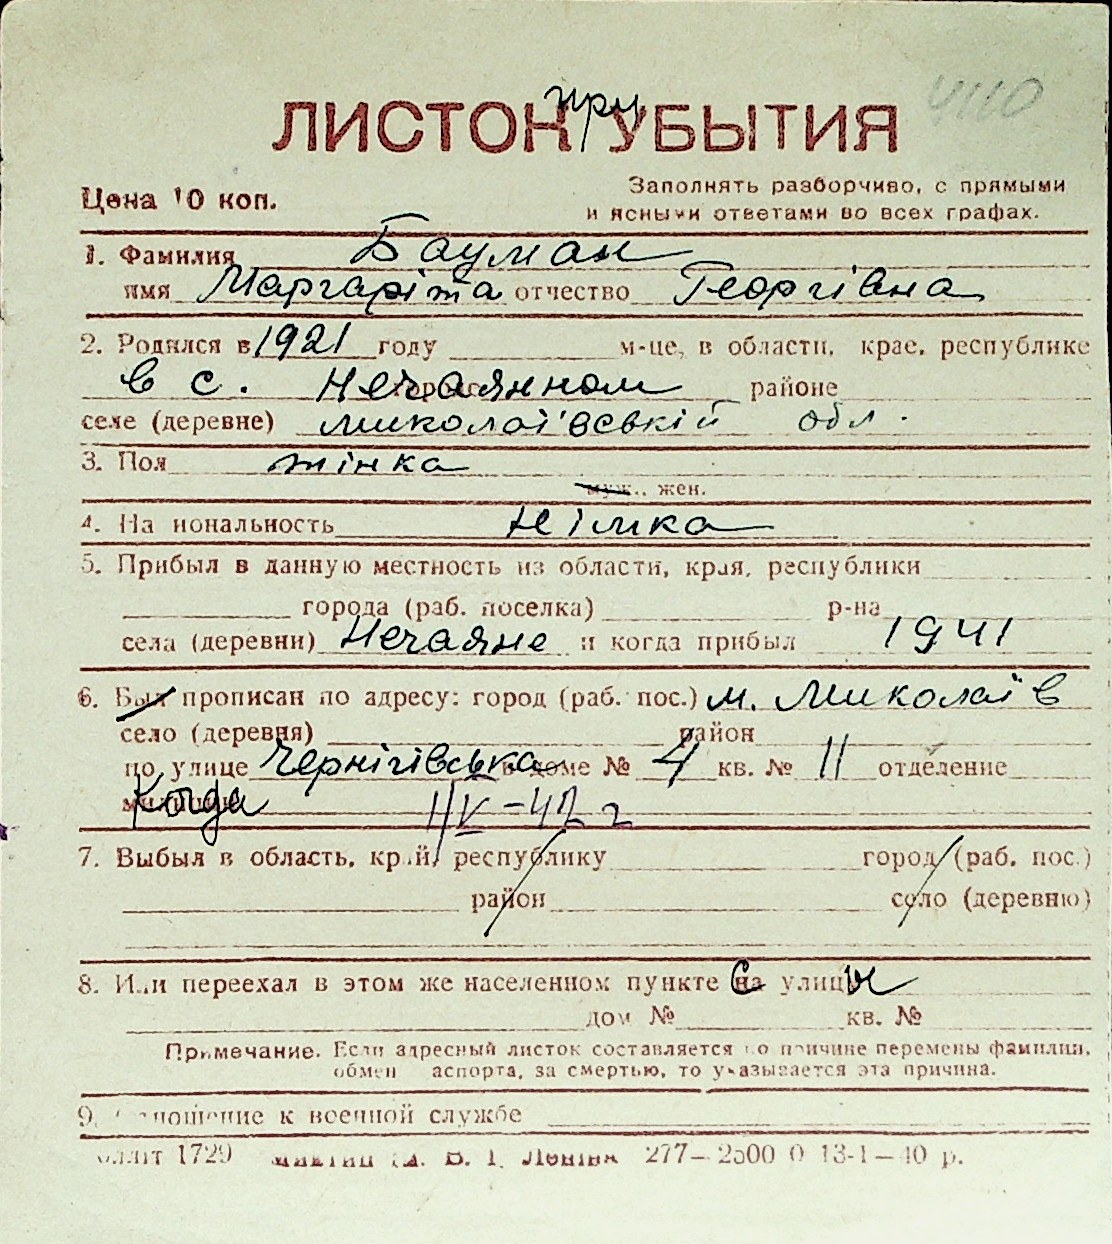 4110
ЛИСТОК при УБЫТИЯ
Цена 10 коп.
Заполнять разборчиво, с прямыми
и ясными ответами во всех графах.
1. Фамилия Бауман
имя Маргаріта отчество Георгівна
2. Родился в 1921 году м-це, в области, крае, республике
в с. Нечаянном районе
селе (деревне) миколаївській обл.
3. Пол жінка
муж., жен.
4. Национальность німка
5. Прибыл в данную местность из области, края, республики
города (раб. поселка) р-на
села (деревни) Нечаяне и когда прибыл 1941
6. Был прописан по адресу: город (раб. пос.) м. Миколаїв
село (деревня) район
по улице Чернігівська в доме № 4 кв. № 11 отделение
милиции Когда 1/IV-42 г
7. Выбыл в область, край, республику город (раб. пос.)
район село (деревню)
8. Или переехал в этом же населенном пункте с на улицы
дом № кв. №
Примечание. Если адресный листок составляется по причине перемены фамилии,
обмен паспорта, за смертью, то указывается эта причина.
9. Отношение к военной службе
1729 Леніна 277— 2500 0 13-1—40 р.